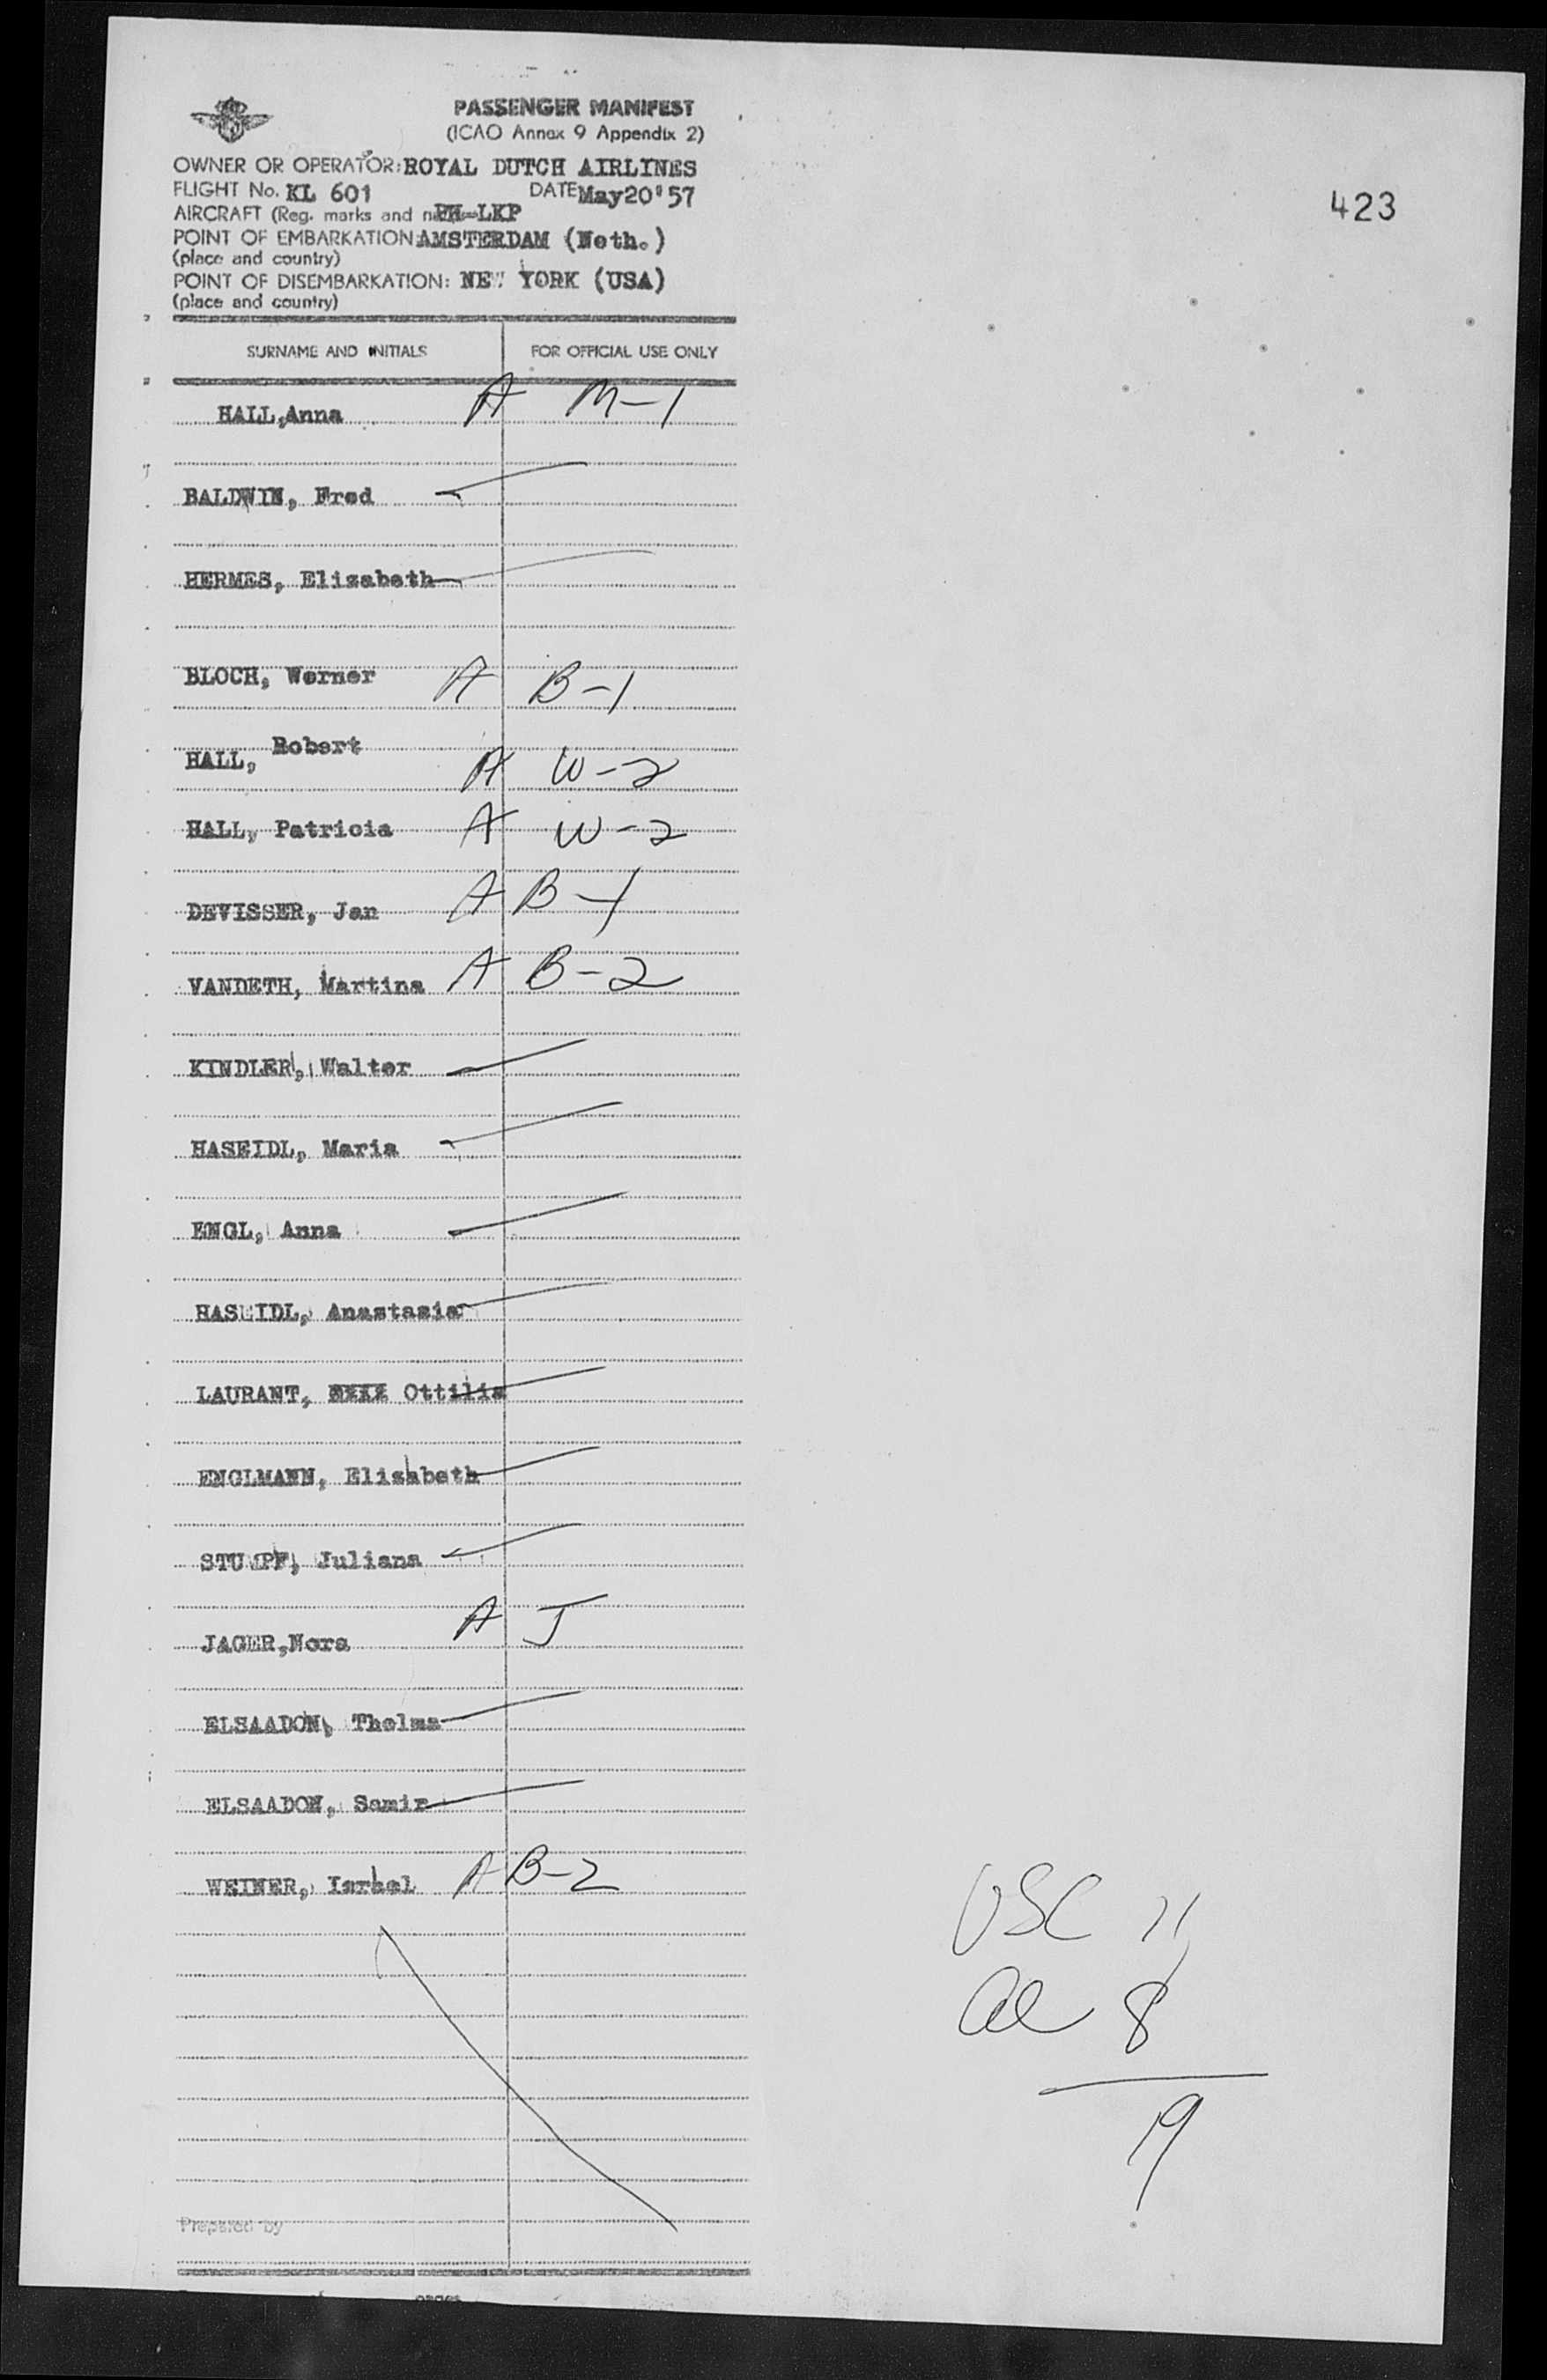 PASSENGER MANIFEST
(ICAO Annex 9 Appendix 2)
OWNER OR OPERATOR: ROYAL DUTCH AIRLINES
FLIGHT No. KL 601 DATE May20'57
423
AIRCRAFT (Reg. marks and PH-LKP
POINT OF EMBARKATION: AMSTERDAM (Neth.)
(place and country)
POINT OF DISEMBARKATION: NEW YORK (USA)
(place and country)
SURNAME AND INITIALS FOR OFFICIAL USE ONLY
HALL, Anna A M-1
BALDWIN, Fred
HERMES, Elizabeth
BLOCH, Werner A B-1
HALL, Robert A W-2
HALL, Patricia A W-2
DEVISSER, Jan A B-1
VANDETH, Martina A B-2
KINDLER, Walter
HASEIDL, Maria
ENGL, Anna
HASEIDL, Anastasia
LAURANT, Ottilia
ENGLMANN, Elisabeth
STUMPF, Juliana
JAGER, Nora A J
ELSAADON, Thelma
ELSAADON, Samir
WEINER, Israel A B-2
USC 11
al 8
19
Prepared by
pages